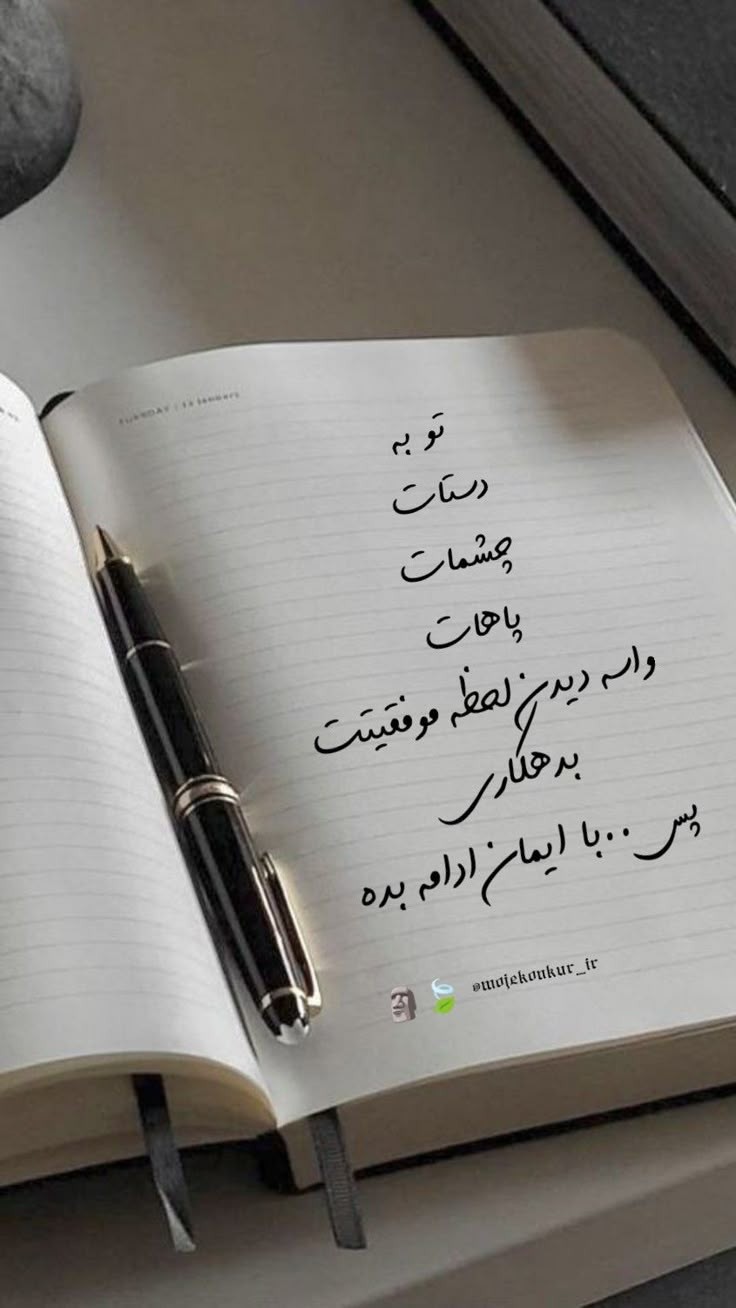 TUESDAY | 12 January
تو به
دستات
چشمات
پاهات
واسه دیدن لحظه موفقیتت
بدهکاری
پس ..با ایمان ادامه بده
@mojekonkur_ir